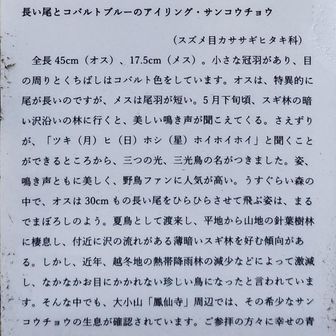 長い尾とコバルトブルーのアイリング・サンコウチョウ
（スズメ目カササギヒタキ科）
全長 45cm（オス）、17.5cm（メス）。小さな冠羽があり、目
の周りとくちばしはコバルト色をしています。オスは、特異的に
尾が長いのですが、メスは尾羽が短い。5 月下旬頃、スギ林の暗
い沢沿いの林に行くと、美しい鳴き声が聞こえてくる。さえずり
が、「ツキ（月）ヒ（日）ホシ（星）ホイホイホイ」と聞くこと
ができるところから、三つの光、三光鳥の名がつきました。姿、
鳴き声ともに美しく、野鳥ファンに人気が高い。うすぐらい森の
中で、オスは 30cm もの長い尾をひらひらさせて飛ぶ姿は、まる
でまぼろしのよう。夏鳥として渡来し、平地から山地の針葉樹林
に棲息し、付近に沢の流れがある薄暗いスギ林を好む傾向があ
る。しかし、近年、越冬地の熱帯降雨林の減少などによって激減
し、なかなかお目にかかれない珍しい鳥になったと言われていま
す。そんな中でも、大小山「鳳仙寺」周辺では、その希少なサン
コウチョウの生息が確認されています。ご参拝の方々に幸せの青